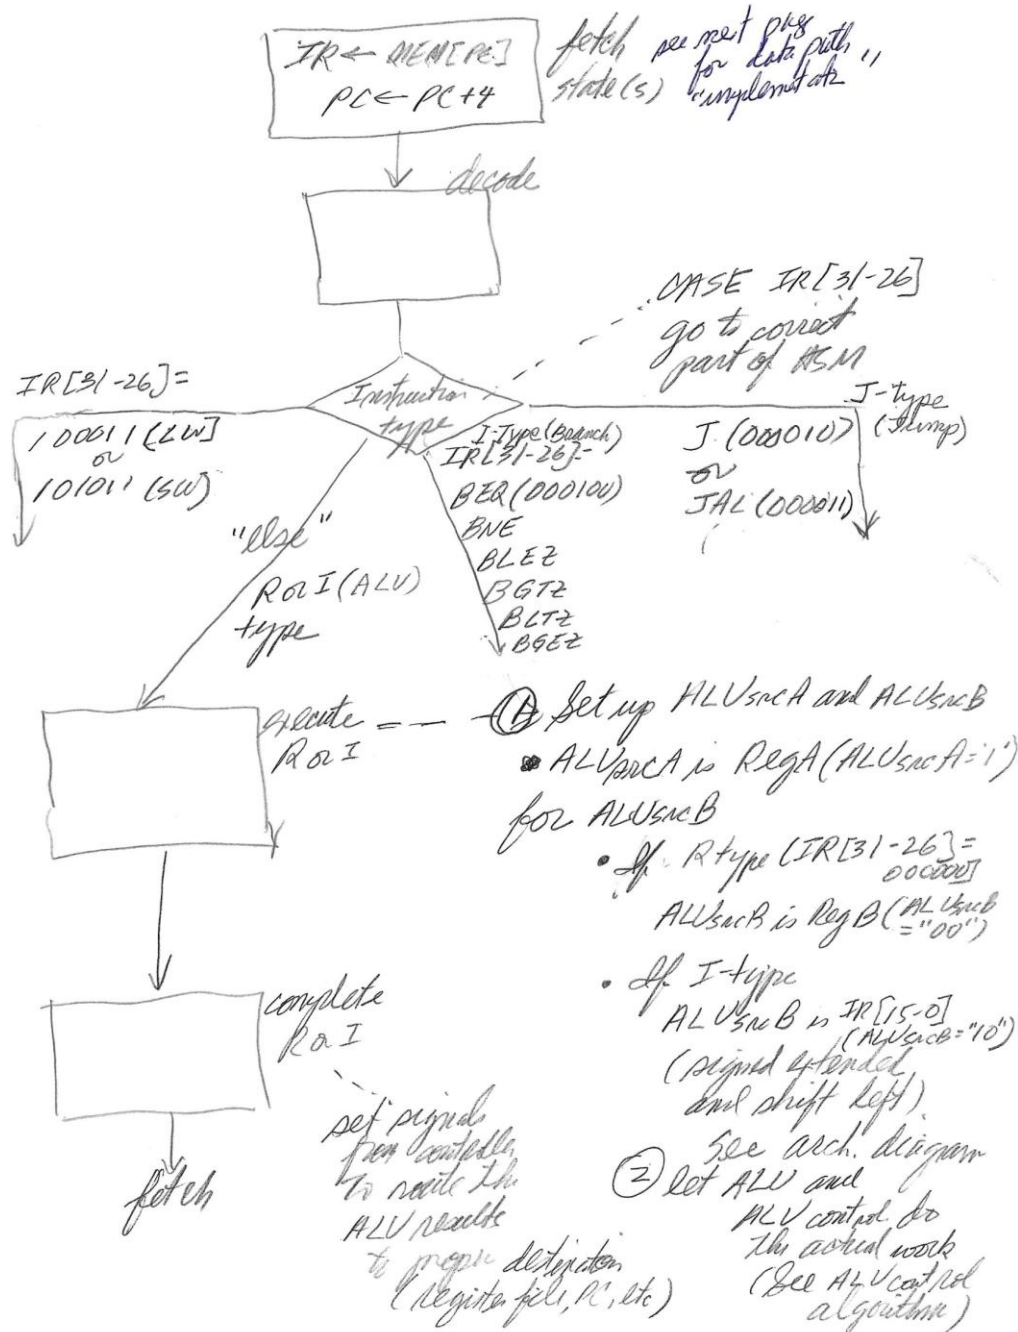 IR ← MEM[PC]
PC ← PC+4
fetch
state(s)
see next pag
for data path
"implementatn"
decode
CASE IR[31-26]
go to correct
part of ASM
IR[31-26]=
100011 (LW)
or
101011 (SW)
Instruction
type
I-Type (Branch)
IR[31-26]=
BEQ (000100)
BNE
BLEZ
BGTZ
BLTZ
BGEZ
J (000010)
or
JAL (000011)
J-type
(Jump)
"else"
R or I (ALU)
type
execute
R or I
Set up ALUsrcA and ALUsrcB
• ALUsrcA is RegA (ALUsrcA='1')
for ALUsrcB
• If R type (IR[31-26]=
000000]
ALUsrcB is Reg B (ALUsrcB
="00")
• If I-type
ALUsrcB is IR[15-0]
(ALUsrcB="10")
(signed extended
and shift left)
See arch. diagram
② let ALU and
ALU control do
the actual work
(See ALU control
algorithm)
complete
R or I
set signals
from controller
to route the
ALU results
to proper destination
(register file, PC, etc)
fetch